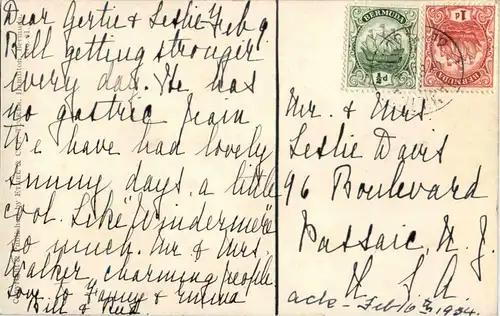 Dear Gertie & Leslie - Feb 9
Bill getting stronger
every day. He has
no gastric pain
We have had lovely
sunny days, a little
cool. Like "Windermere"
so much. Mr & Mrs
Walker charming people.
Love to Fanny & Emma
Bill &
BERMUDA
½d
BERMUDA
1d
Mr. & Mrs.
Leslie Davis
96 Boulevard
Passaic N. J.
U. S. A.
ack - Feb 16th 1934.